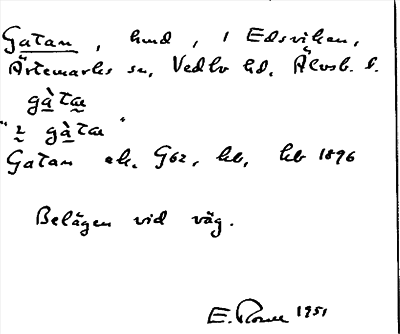 Gatan, hmd, i Edsviken,
Ärtemarks sn, Vedbo hd, Älvsb. l.
gàta
"i gàta"
Gatan ek. G62, hb, hb 1896
Belägen vid väg.
E. 1951